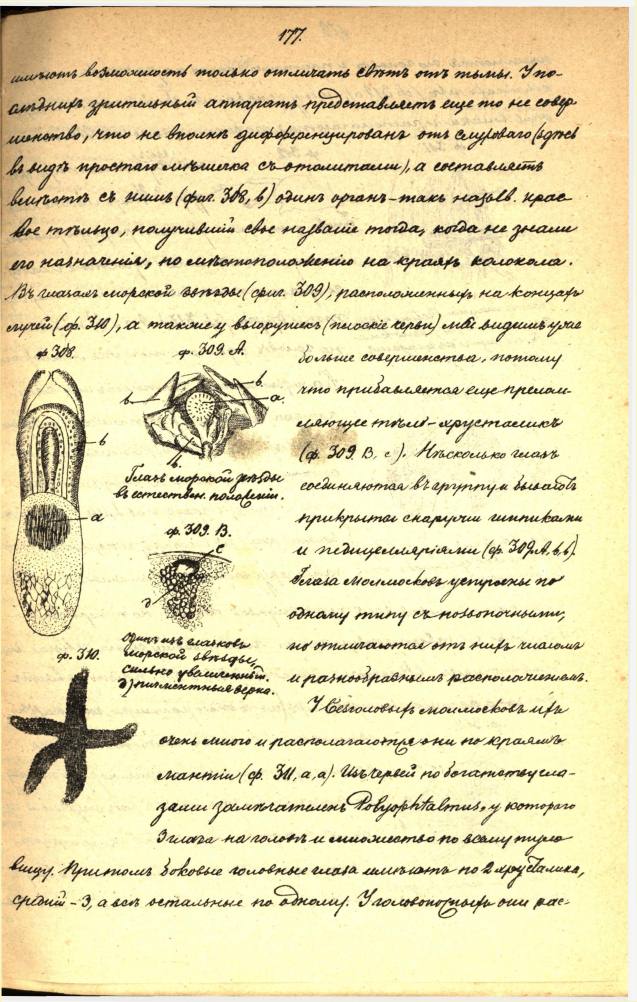 177.
имѣютъ возможность только отличать свѣтъ отъ тьмы. У по-
слѣднихъ зрительный аппаратъ представляетъ еще то не совер
шенство, что не вполнѣ дифференцированъ отъ слуховаго (здѣсь
въ видѣ простаго мѣшечка съ отолитами), а составляетъ
вмѣстѣ съ нимъ (фиг. 308, в) одинъ органъ - такъ назыв. крае
вое тѣльцо, получившій свое названіе тогда, когда не знали
его назначенія, по мѣстоположенію на краяхъ колокола.
Въ глазахъ морской звѣзды (фиг. 309), расположенныхъ на концахъ
лучей (ф. 310), а также у (плоскіе черви) мы видимъ уже
ф 308.
в
а
ф. 309. А.
в
в.
а.
в.
Глазъ морской звѣзды
въ естествен. положеніи.
ф. 309. В.
с
д
одинъ изъ глазковъ
морской звѣзды,
сильно увеличенный.
д) пигментныя зерна.
ф. 310.
больше совершенства, потому
что прибавляется еще прелом-
ляющее тѣло - хрусталикъ
(ф. 309. В, с). Нѣсколько глазъ
соединяются въ группу и бываютъ
прикрыты снаружи шипиками
и педицелляріями (ф. 309. А, в, в).
Глаза моллюсковъ устроены по
одному типу съ позвоночными,
но отличаются отъ нихъ числомъ
и разнообразнымъ расположеніемъ.
У безголовыхъ моллюсковъ ихъ
очень много и располагаются они по краямъ
мантіи (ф. 311, а, а). Изъ червей по богатству гла-
зами замѣчателенъ Polyophtalmus, у котораго
3 глаза на головѣ и множество по всему туло
вищу. Притомъ боковые головные глаза имѣютъ по 2 хрусталика,
средній - 3, а всѣ остальные по одному. У головоногихъ они рас-